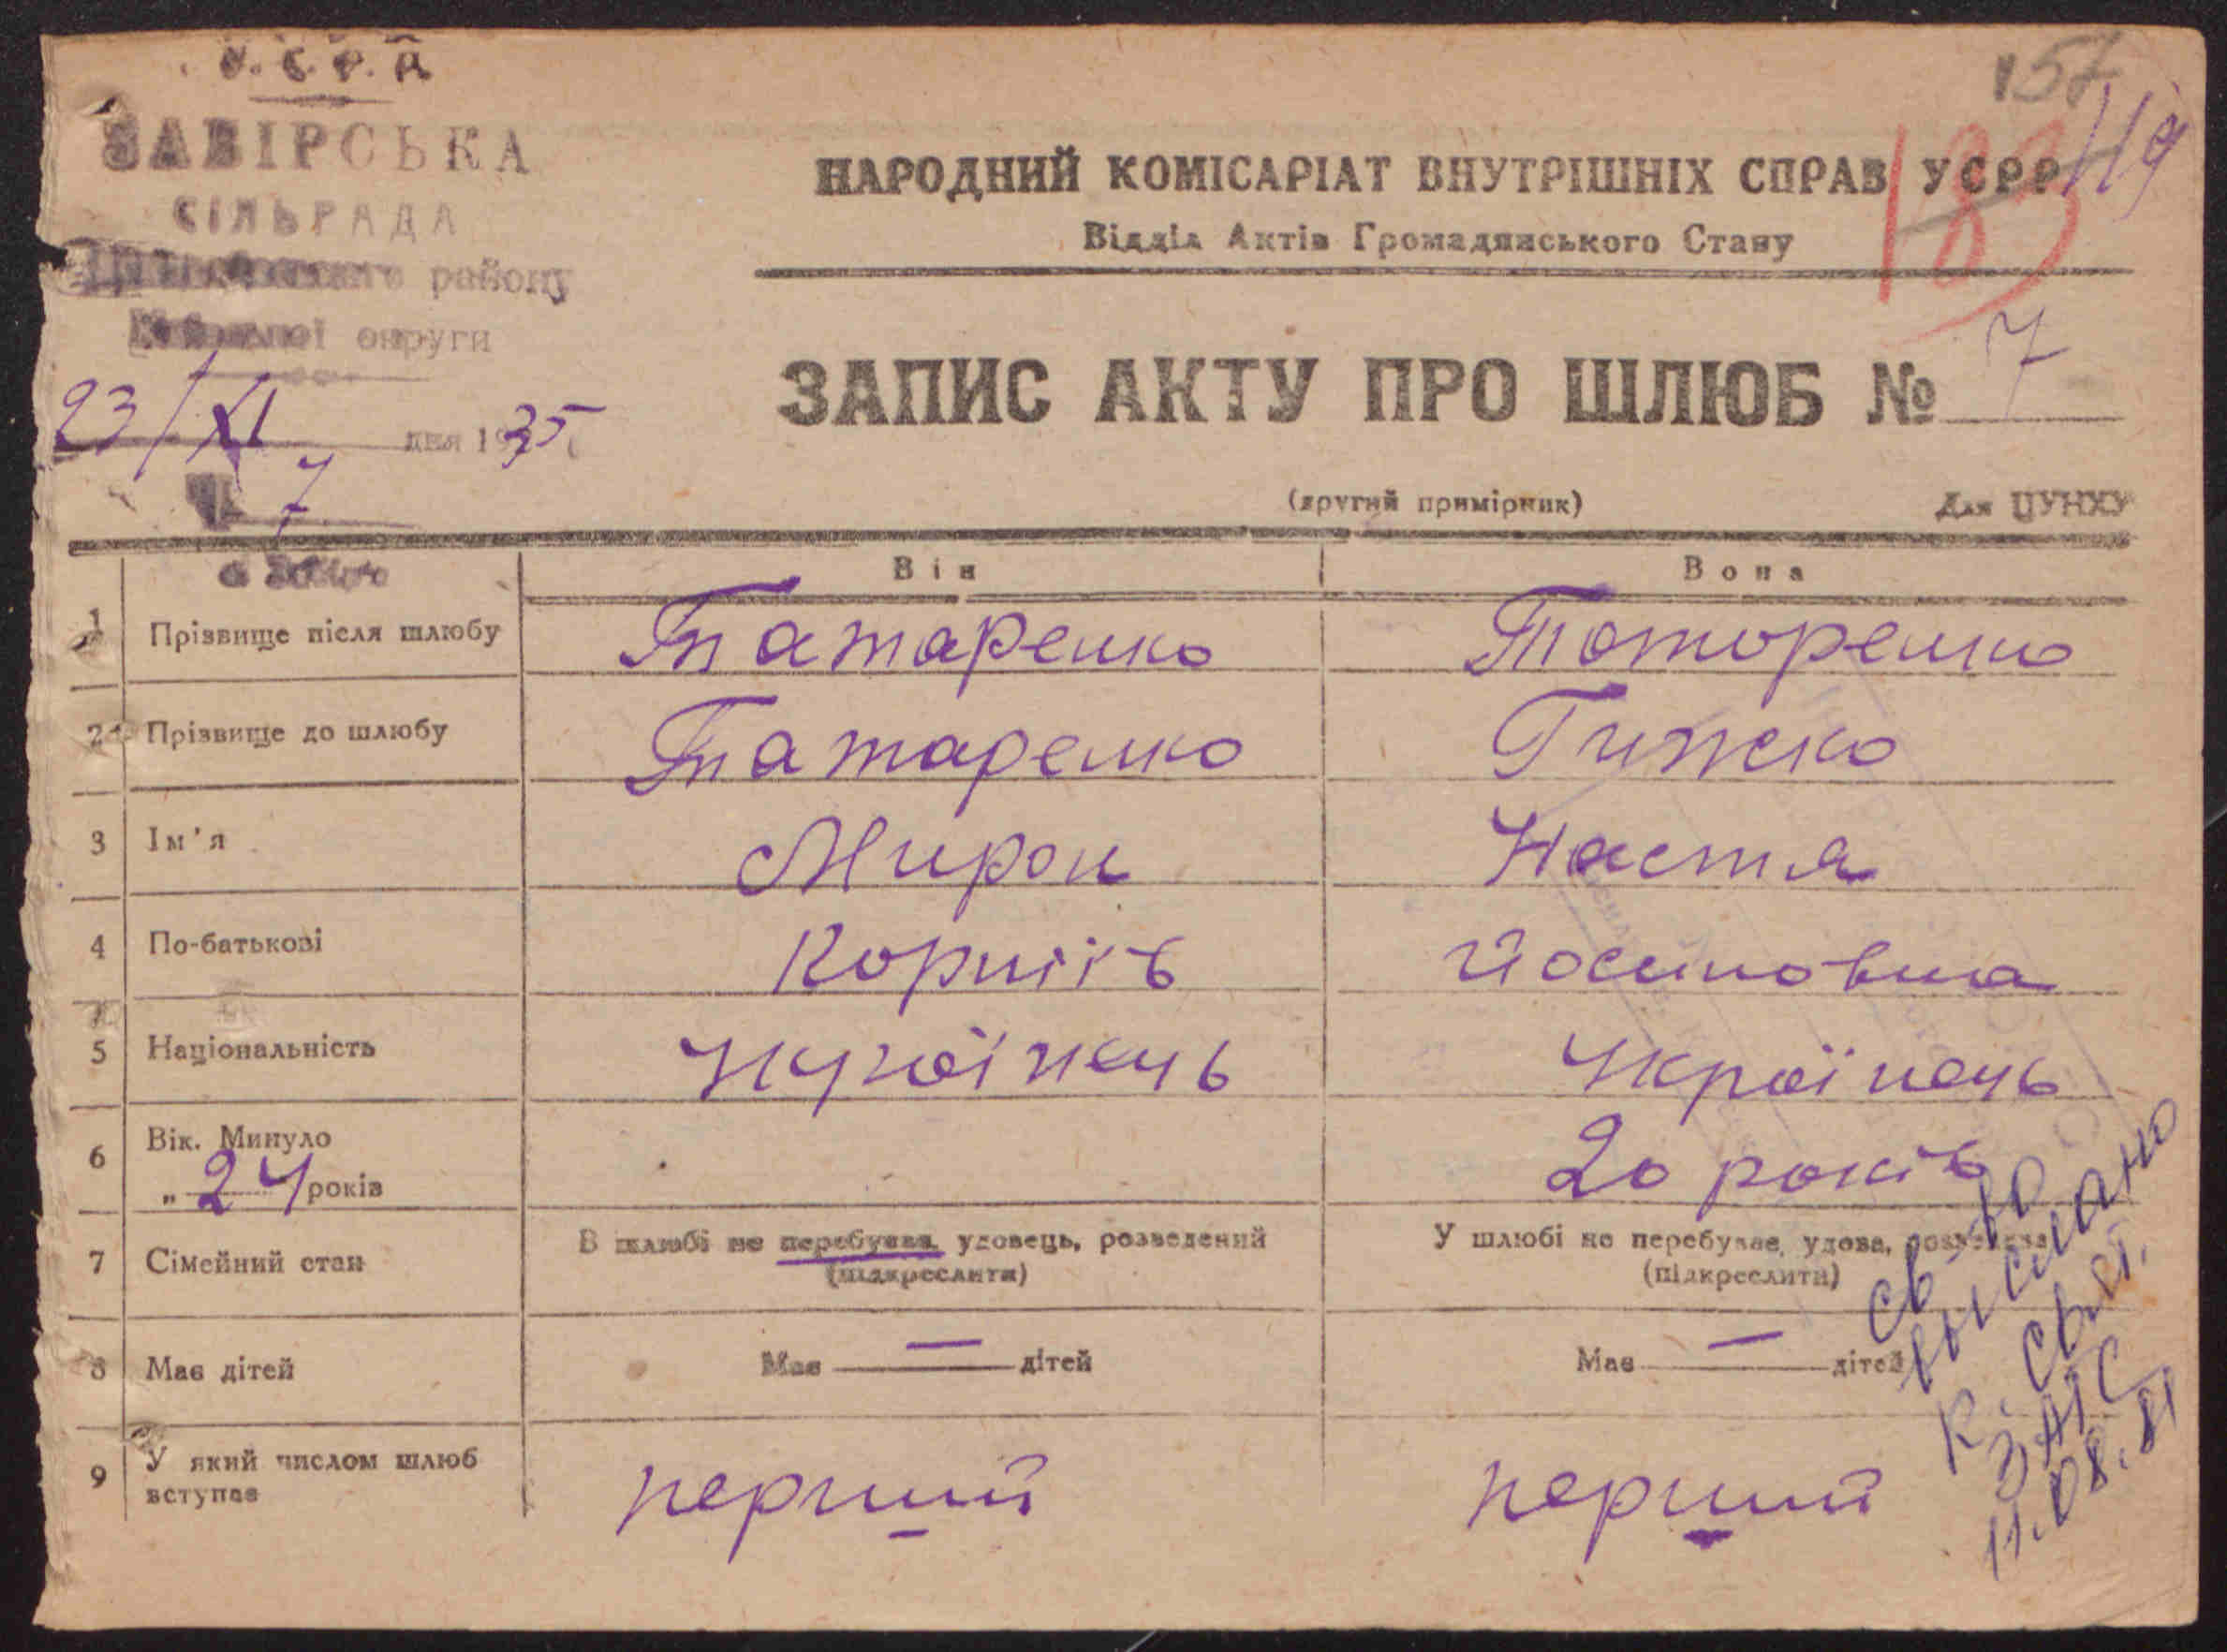 У.С.Р.Р.
ЗАВІРСЬКА
СІЛЬРАДА
району
округи
23/XI дня 1935
№ 7
157
119
183
НАРОДНИЙ КОМІСАРІАТ ВНУТРІШНІХ СПРАВ УСРР
Відділ Актів Громадянського Стану
ЗАПИС АКТУ ПРО ШЛЮБ № 7
(другий примірник) Для ЦУНХУ
Він Вона
1 Прізвище після шлюбу Татаренко Татаренко
2 Прізвище до шлюбу Татаренко Гижко
3 Ім'я Мирон Настя
4 По-батькові Корніїв Йосиповна
5 Національність Українець Українець
6 Вік. Минуло 20 років
„ 24 років
7 Сімейний стан В шлюбі не перебував, удовець, розведений У шлюбі не перебувае, удова, розведена
(підкреслити) (підкреслити)
8 Має дітей Має — дітей Має — дітей
9 У який числом шлюб вступає перший перший
св-во
выслано
К. Свят.
ЗАГС
11.08.81